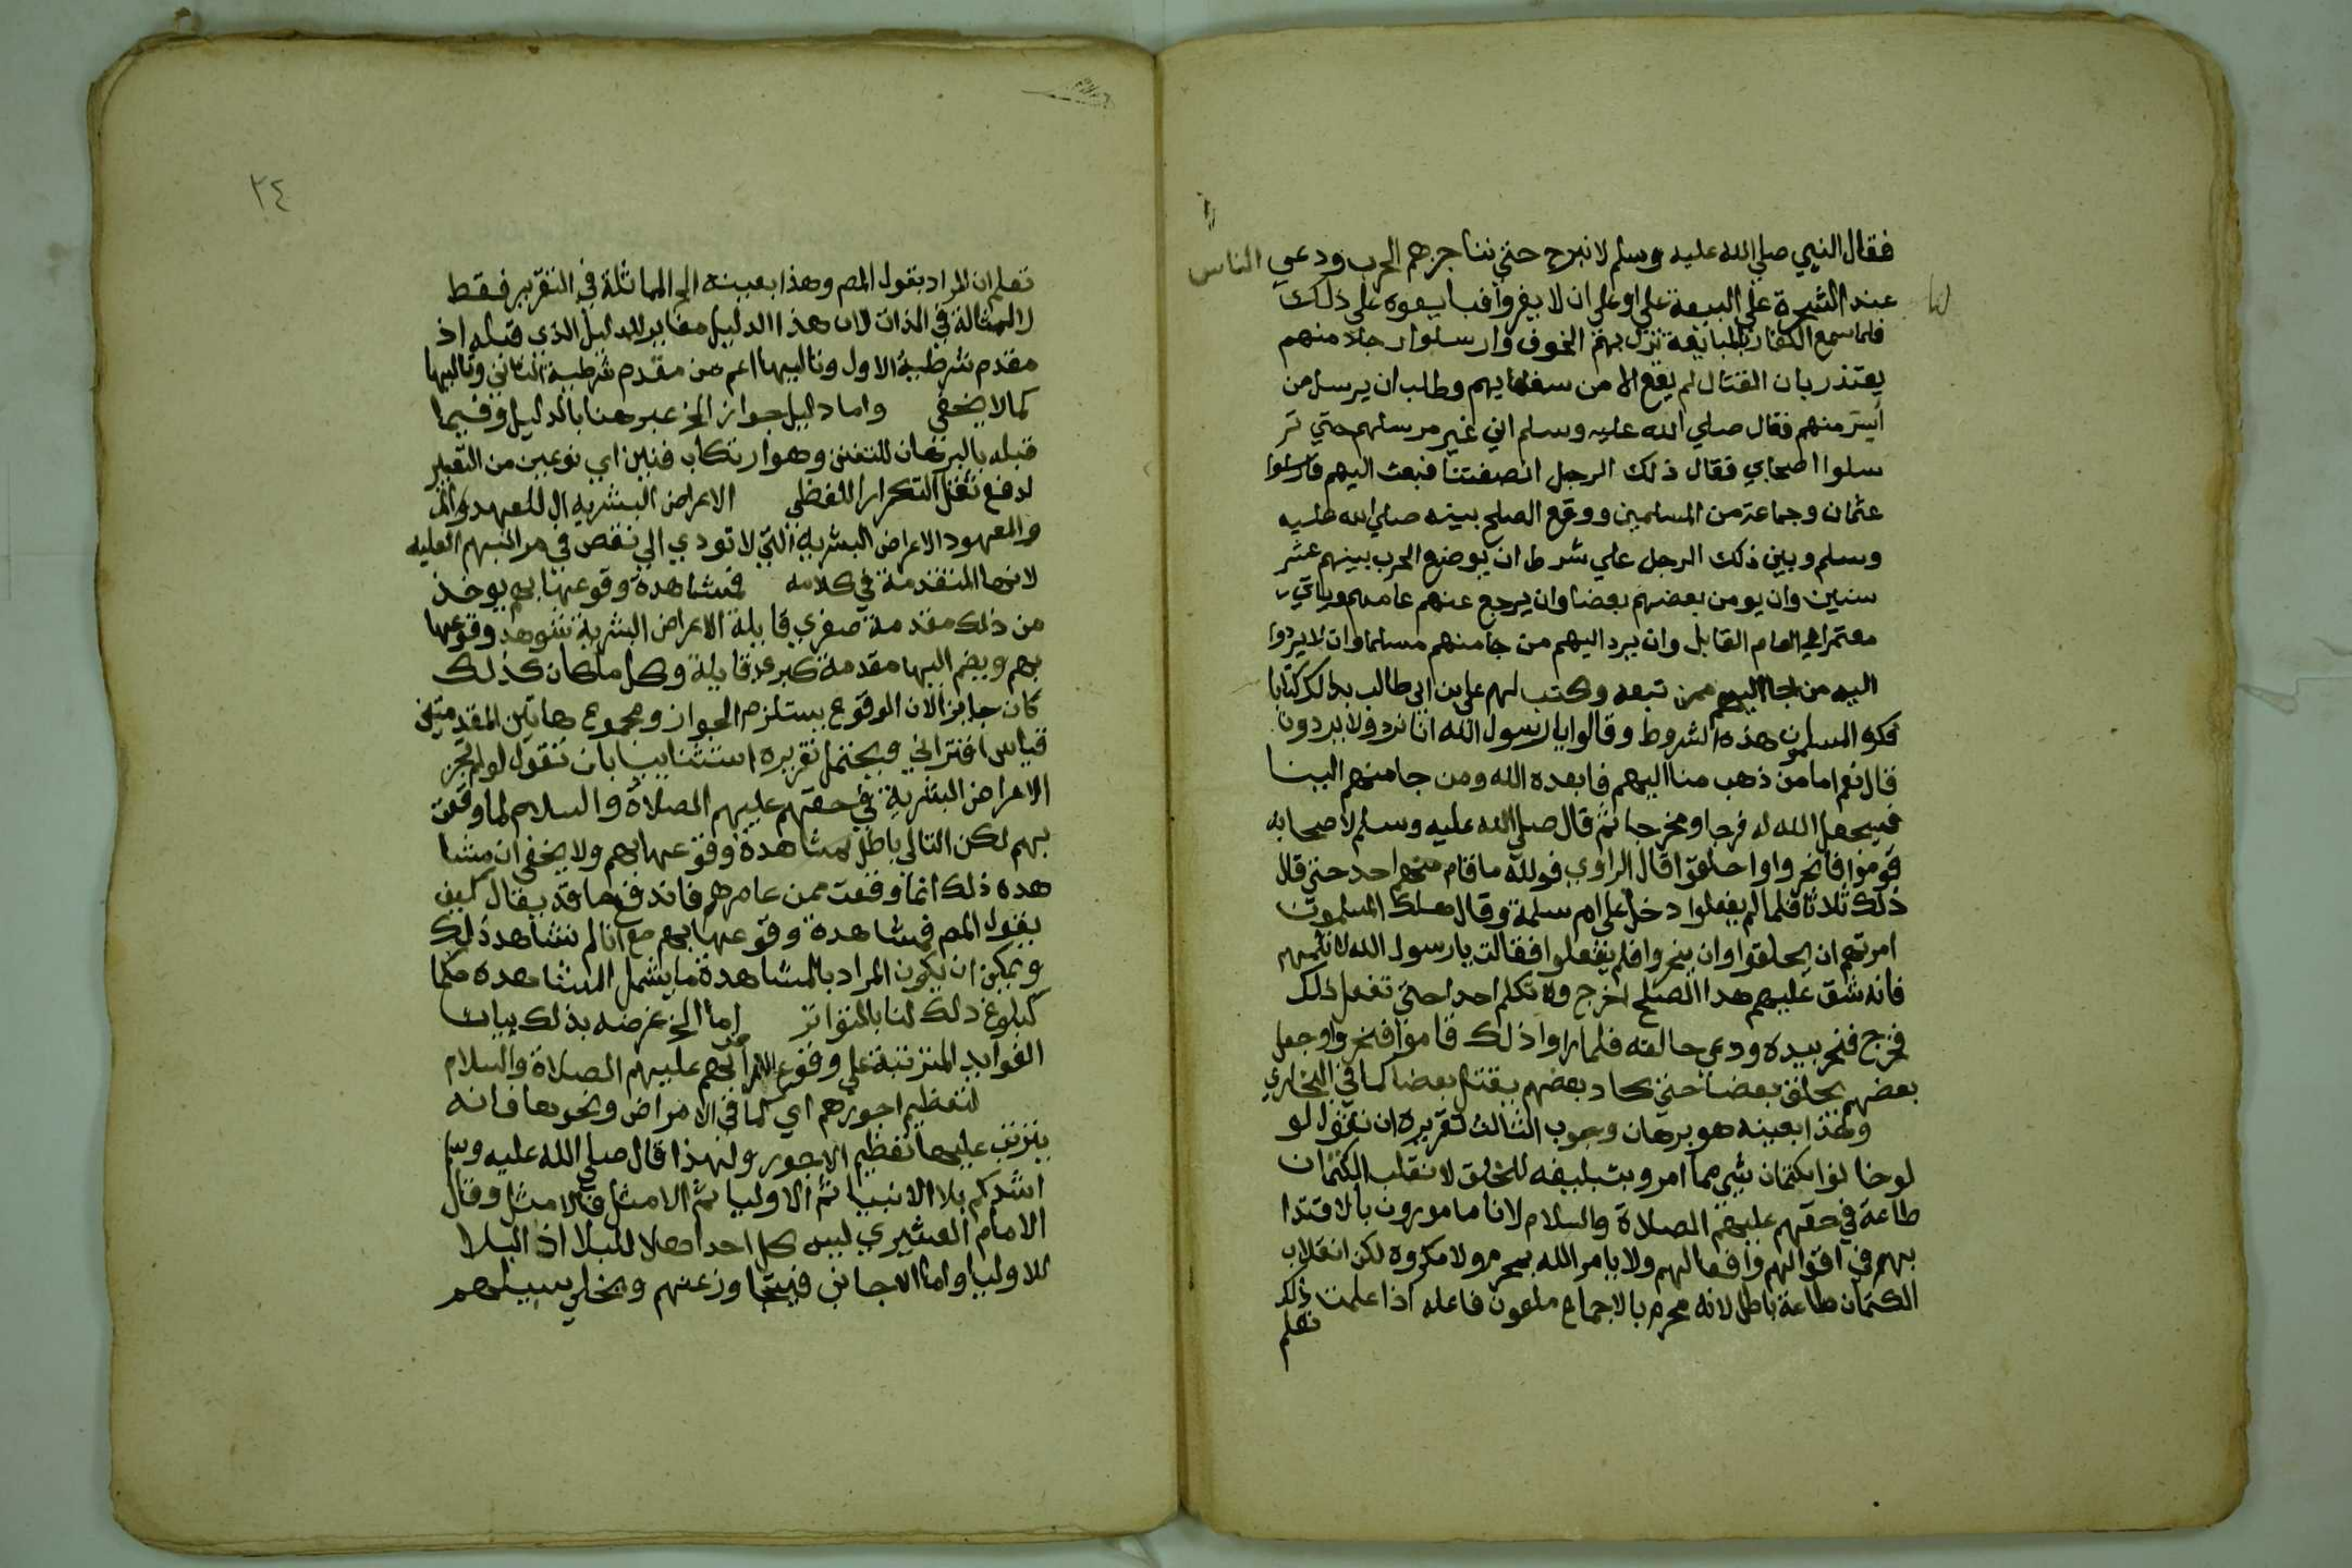 فقال النبي صلي الله عليه وسلم لا نبرح حتي نناجزهم الحرب ودعي الناس
عند الشجرة علي البيعة علي او علي ان لا يفروا فبايعوه علي ذلك
فلما سمع الكفار بالمبايعة نزل بهم الخوف وارسلوا رجلا منهم
يعتذر بان القتال لم يقع الا من سفهايهم وطلب ان يرسل من
أسر منهم فقال صلي الله عليه وسلم اني غير مرسلهم حتي تر
سلوا اصحابي فقال ذلك الرجل انصفتنا فبعث اليهم فارسلوا
عثمان وجماعة من المسلمين ووقع الصلح بينه صلي الله عليه
وسلم وبين ذلك الرجل علي شرط ان يوضع الحرب بينهم عشر
سنين وان يومن بعضهم بعضا وان يرجع عنهم عامهم وياتي
معتمرا في العام القابل وان يرد اليهم من جا منهم مسلما وان لا يردوا
اليه من جا اليهم ممن تبعه وكتب لهم علي بن ابي طالب بذلك كتابا
فكره المسلمون هذه الشروط وقالوا يا رسول الله انا نرد ولا يردون
قال نعم اما من ذهب منا اليهم فابعده الله ومن جا منهم الينا
فسيجعل الله له فرجا ومخرجا ثم قال صلي الله عليه وسلم لاصحابه
قوموا فانحروا واحلقوا قال الراوي فوالله ما قام منهم احد حتي قال
ذلك ثلاثا فلما لم يفعلوا دخل علي ام سلمة وقال هلك المسلمون
امرتهم ان يحلقوا وان ينحروا فلم يفعلوا فقالت يا رسول الله لا تلمهم
فانه شق عليهم هذا الصلح اخرج ولا تكلم احدا حتي تفعل ذلك
فخرج فنحر بيده ودعي حالقه فلما راوا ذلك قاموا فنحروا وجعل
بعضهم يحلق بعضا حتي كاد بعضهم يقتل بعضا كما في البخاري
وهذا بعينه هو برهان وجوب الثالث تقريره ان نقول لو
لو خانوا بكتمان شي مما امروا بتبليغه للخلق لانقلب الكتمان
طاعة في حقهم عليهم الصلاة والسلام لانا مامورون بالاقتدا
بهم في اقوالهم وافعالهم ولا يامر الله بمحرم ولا مكروه لكن انقلاب
الكتمان طاعة باطل لانه محرم بالاجماع ملعون فاعله اذا علمت ذلك
تعلم
٢٤
تعلم ان المراد بقول المص وهذا بعينه الخ المماثلة في التقرير فقط
لا المماثلة في الذات لان هذا الدليل مغاير للدليل الذي قبله اذ
مقدم شرطية الاول وتاليها اعم من مقدم شرطية الثاني وتاليها
كما لا يخفي واما دليل جواز الخ عبر هنا بالدليل وفيما
قبله بالبرهان للتفنن وهو ارتكاب فنين اي نوعين من التعبير
لدفع ثقل التكرار اللفظي الاعراض البشرية ال للعهد
والمعهود الاعراض البشرية التي لا تودي الي نقص في مراتبهم العليه
لانها المتقدمة في كلامه فمشاهدة وقوعها بهم يوخذ
من ذلك مقدمة صغري قايلة الاعراض البشرية شوهد وقوعها
بهم ويضم اليها مقدمة كبري قايلة وكل ما كان كذلك
كان جايزا لان الوقوع يستلزم الجواز ومجموع هاتين المقدمتين
قياس اقتراني ويحتمل تقريره استثنائيا بان نقول لو لم تجز
الاعراض البشرية في حقهم عليهم الصلاة والسلام لما وقعت
بهم لكن التالي باطل لمشاهدة وقوعها بهم ولا يخفي ان مشا
هدة ذلك انما وقعت ممن عاصرهم فاندفع ما قد يقال كيف
يقول المص فمشاهدة وقوعها بهم مع انا لم نشاهد ذلك
ويمكن ان يكون المراد بالمشاهدة ما يشمل المشاهدة حكما
كبلوغ ذلك لنا بالتواتر اما الخ غرضه بذلك بيان
الفوايد المترتبة علي وقوع بهم عليهم الصلاة والسلام
لتعظيم اجورهم اي كما في الامراض ونحوها فانه
يترتب عليها تعظيم الاجور ولهذا قال صلي الله عليه وسلم
اشدكم بلا الانبيا ثم الاوليا ثم الامثل فالامثل وقال
الامام القشيري ليس كل احد اهلا للبلا اذ البلا
للاوليا واما الاجانب فيتجاوز عنهم ويخلي سبيلهم